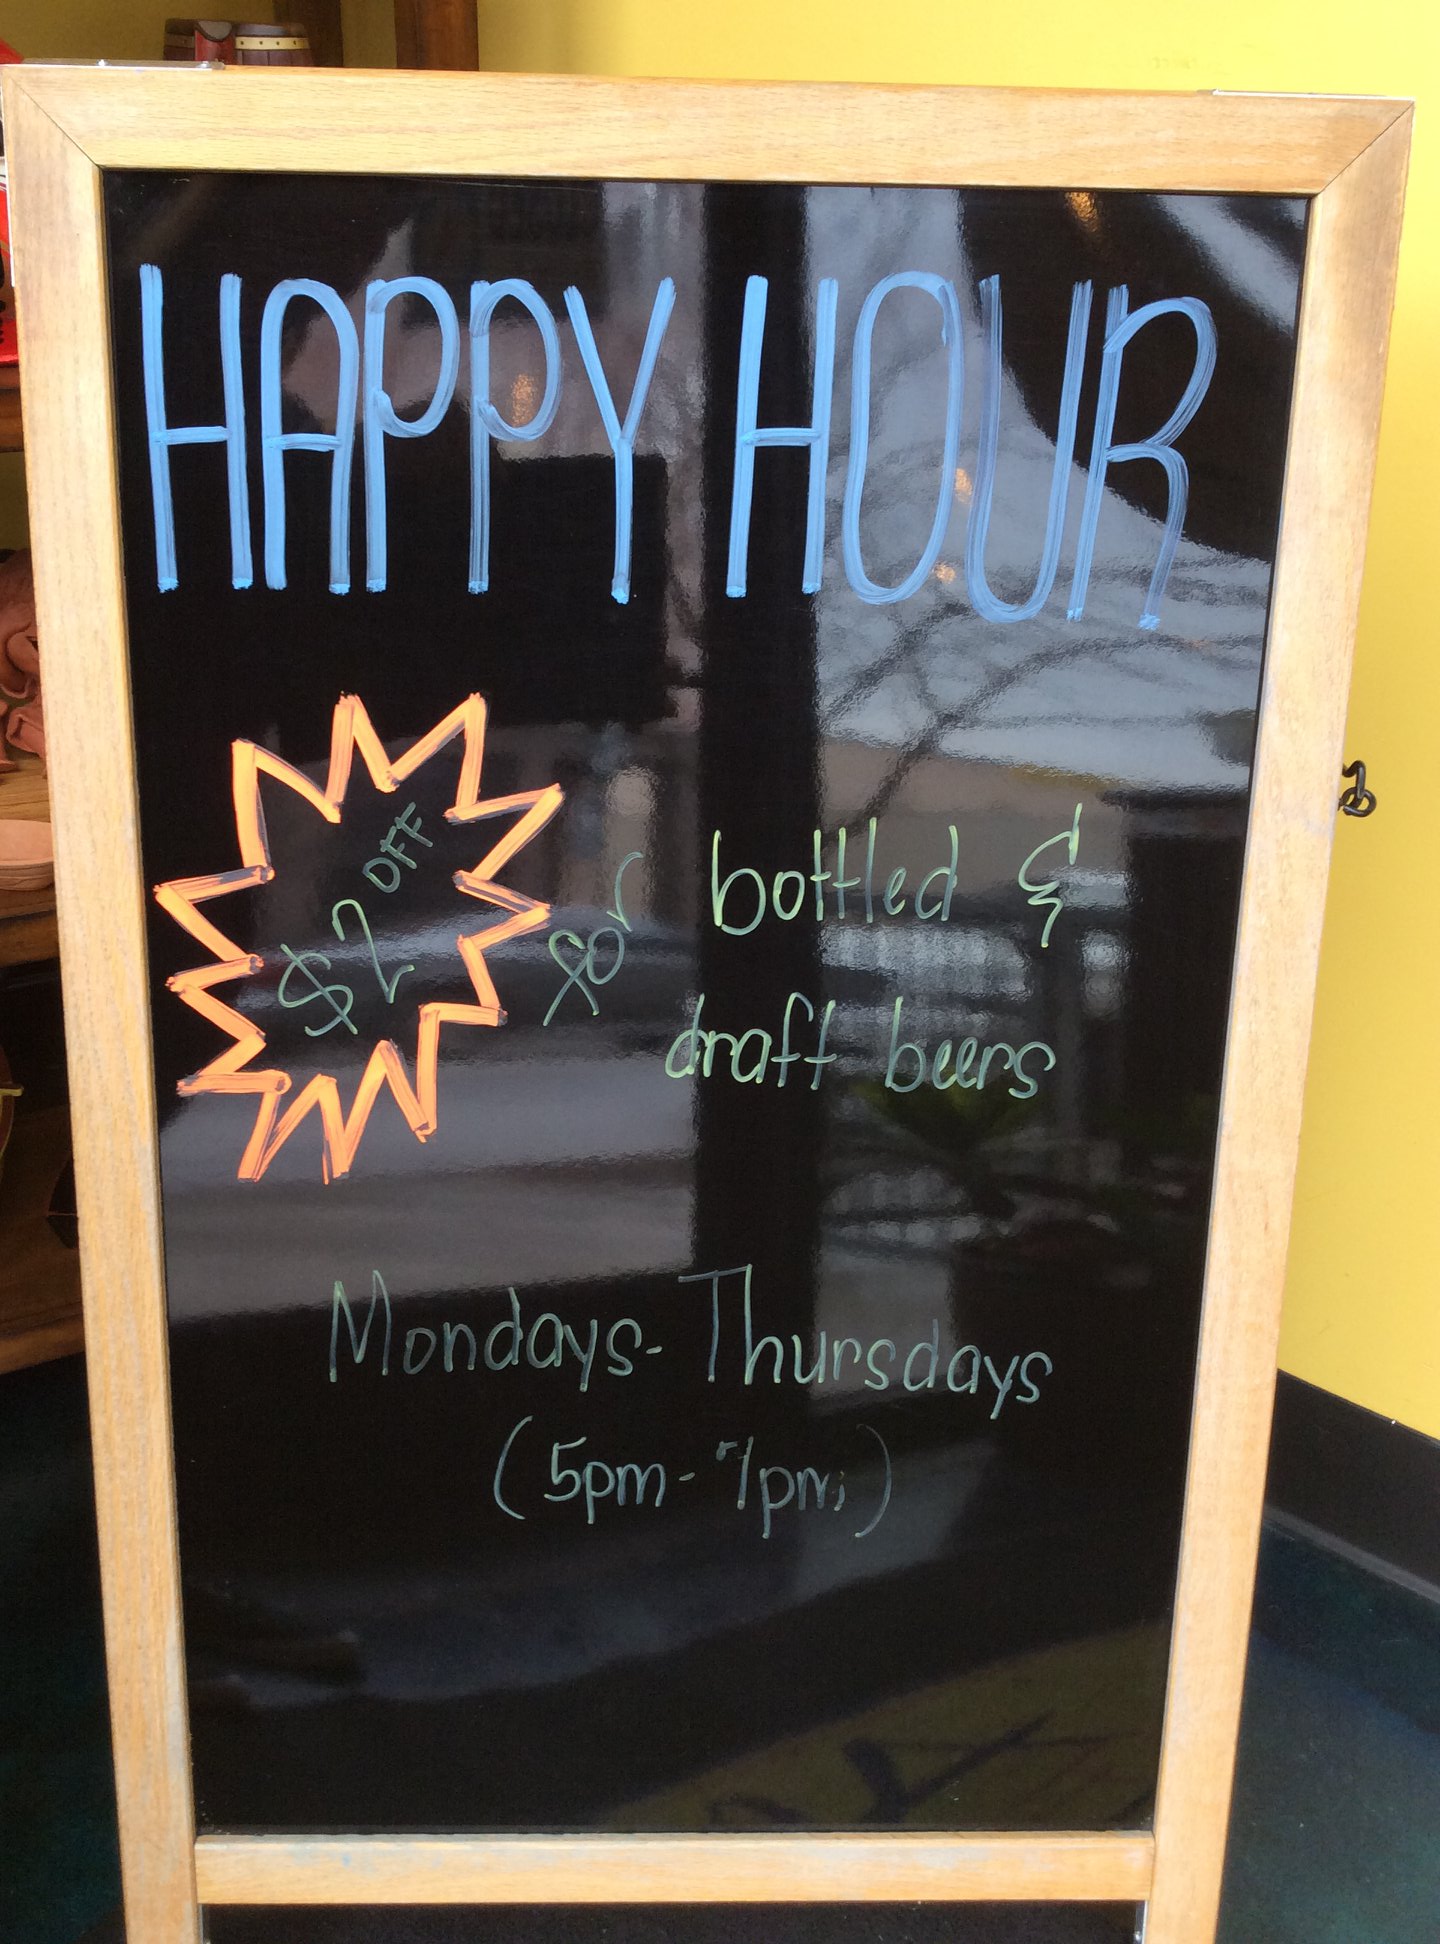 HAPPY HOUR
$2 OFF for bottled &
draft beers
Mondays-Thursdays
(5pm-7pm)